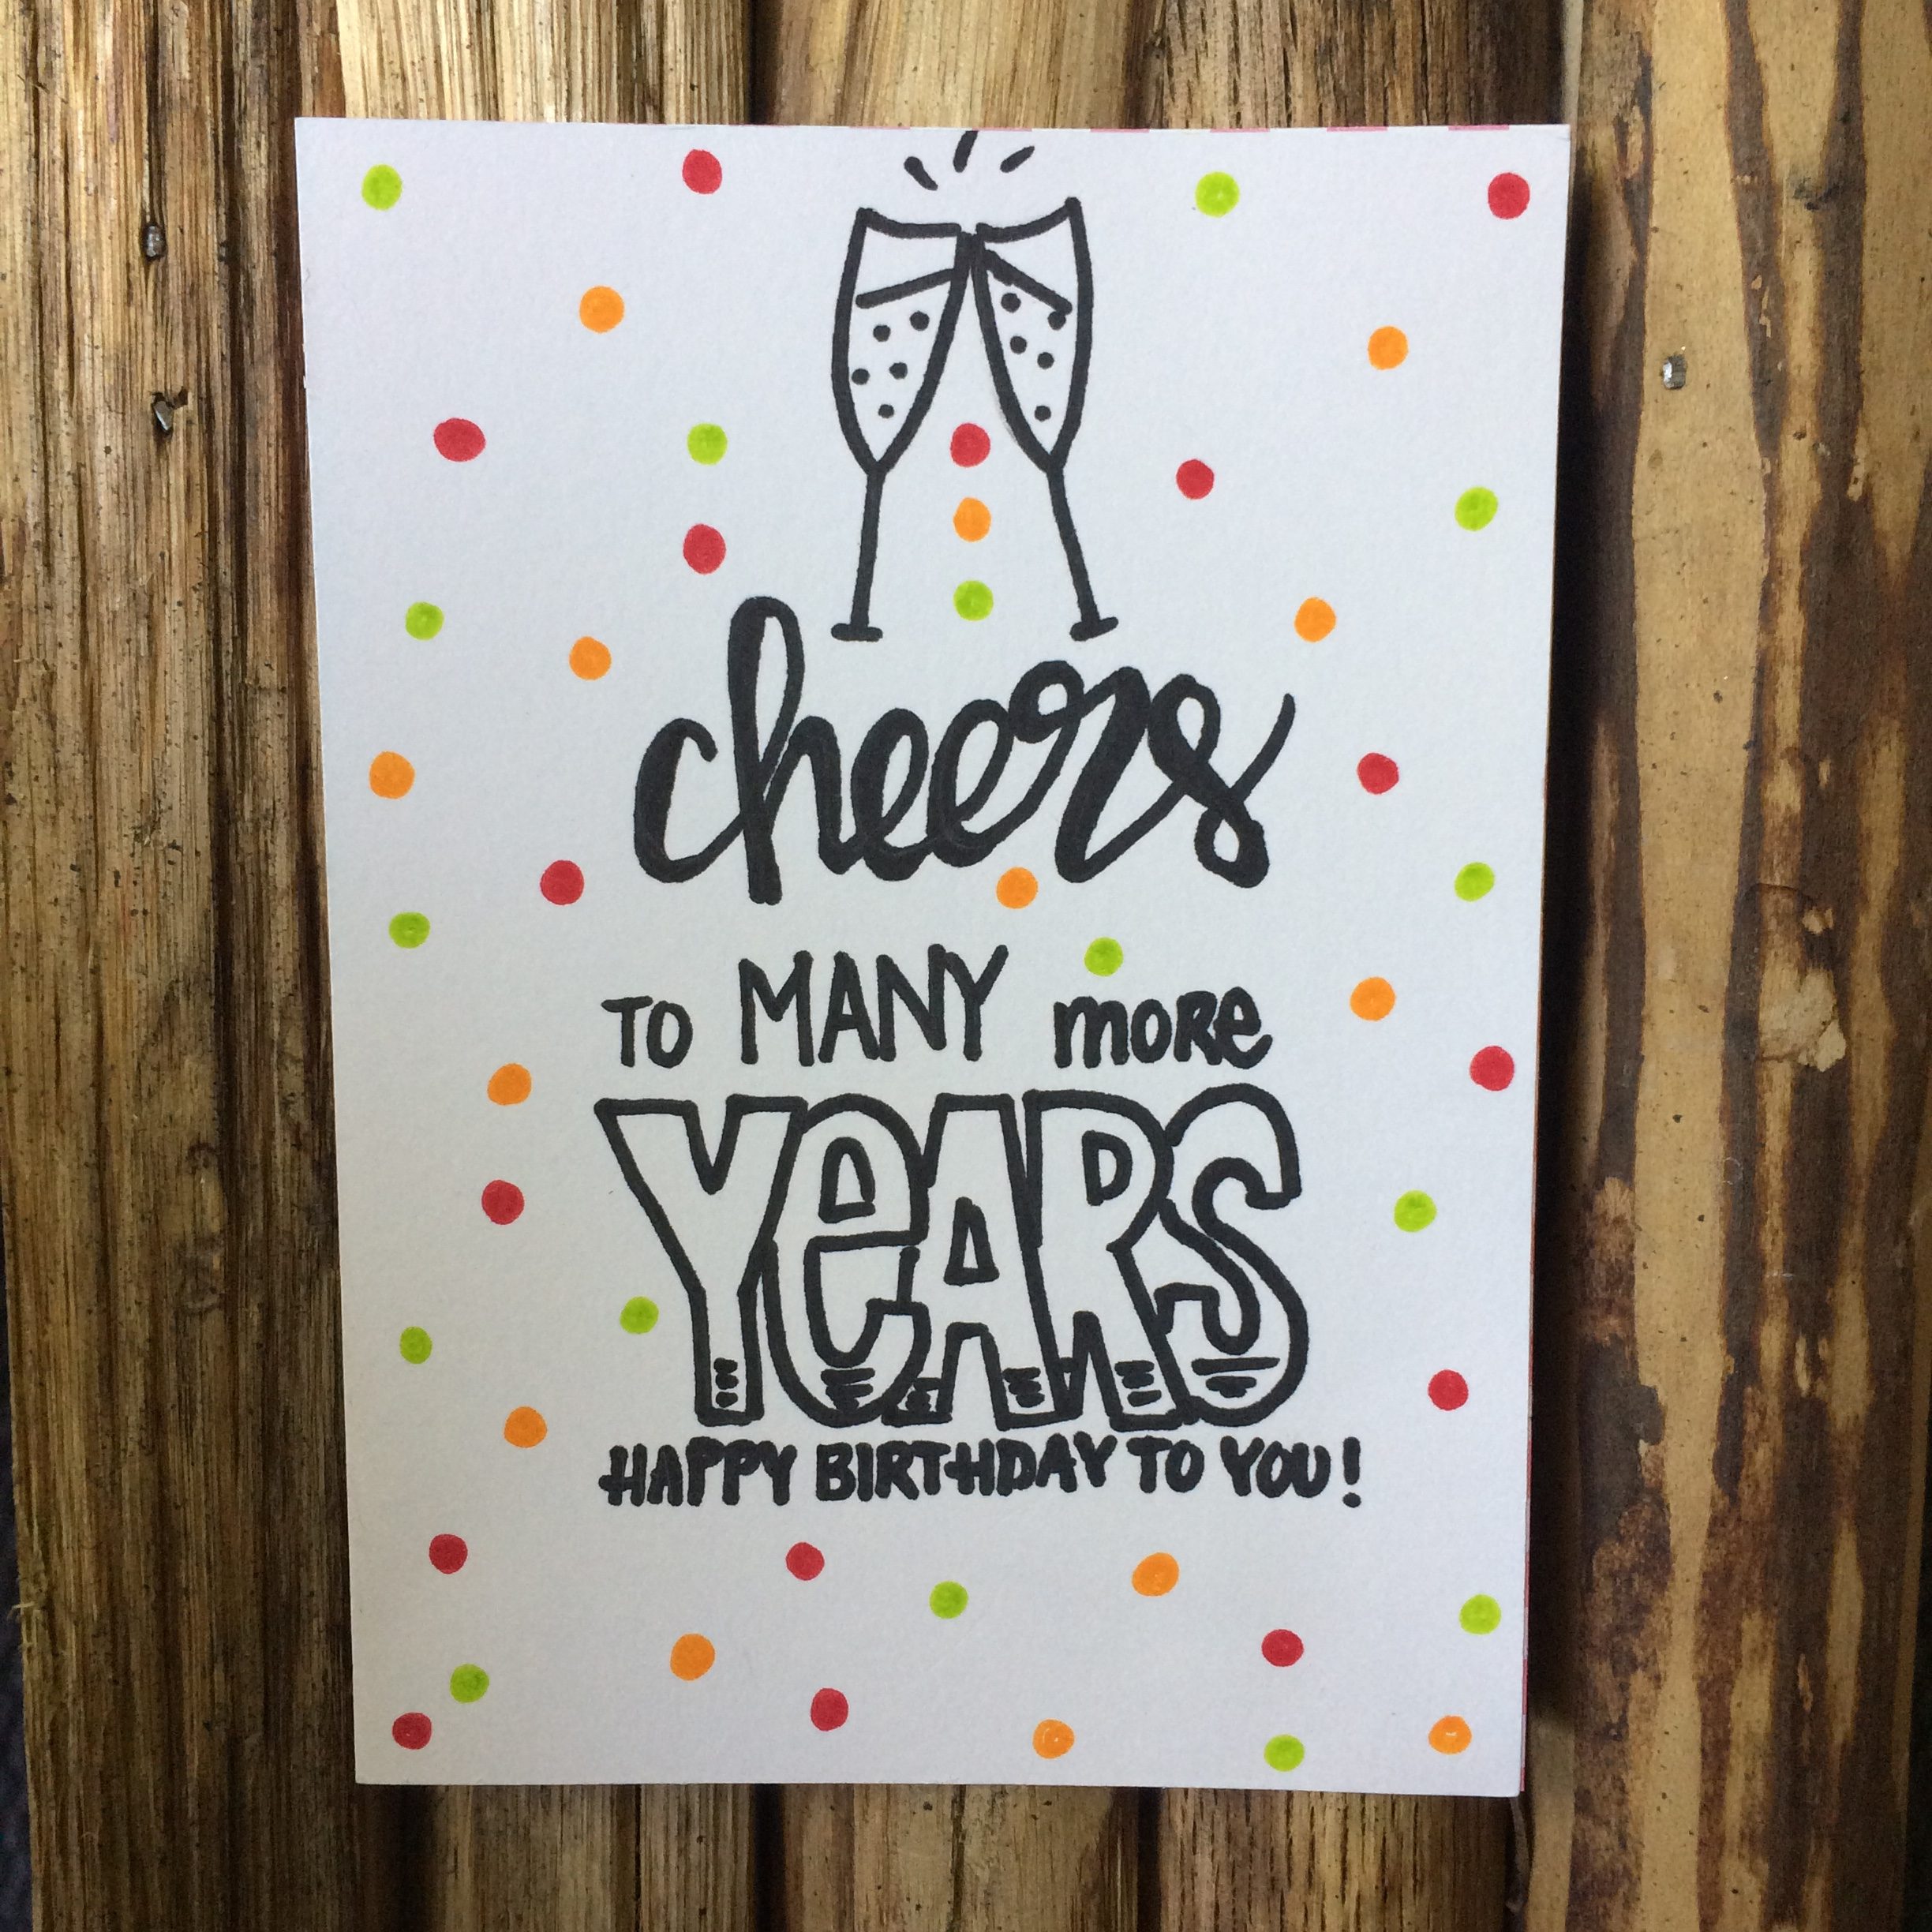 cheers
TO MANY more
YeARS
HAPPY BIRTHDAY TO YOU!